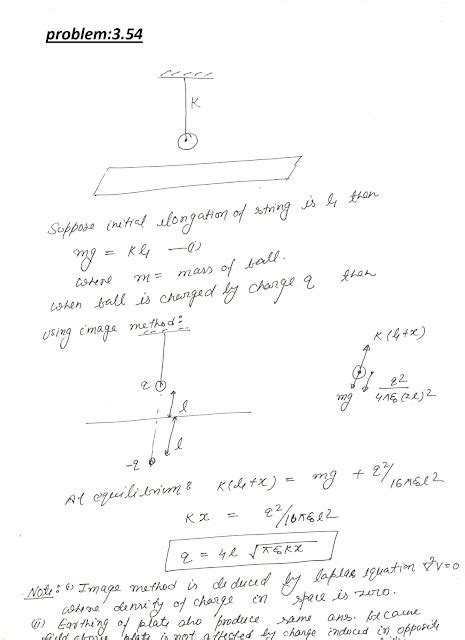 problem:3.54
K
Suppose initial elongation of string is l₁ then
mg = Kl₁ —(1)
where m = mass of ball.
when ball is charged by charge q then
using image method:
K(l₁+x)
q
l
mg q²/4πε₀(2l)²
l
-q
At equilibrium: K(l₁+x) = mg + q²/16πε₀l²
Kx = q²/16πε₀l²
q = 4l √πε₀Kx
Note: (i) Image method is deduced by laplac equation ∇²V=0
where density of charge in space is zero.
(ii) Earthing of plate also produce same ans. because
above plate is not affected by charge induced in opposite